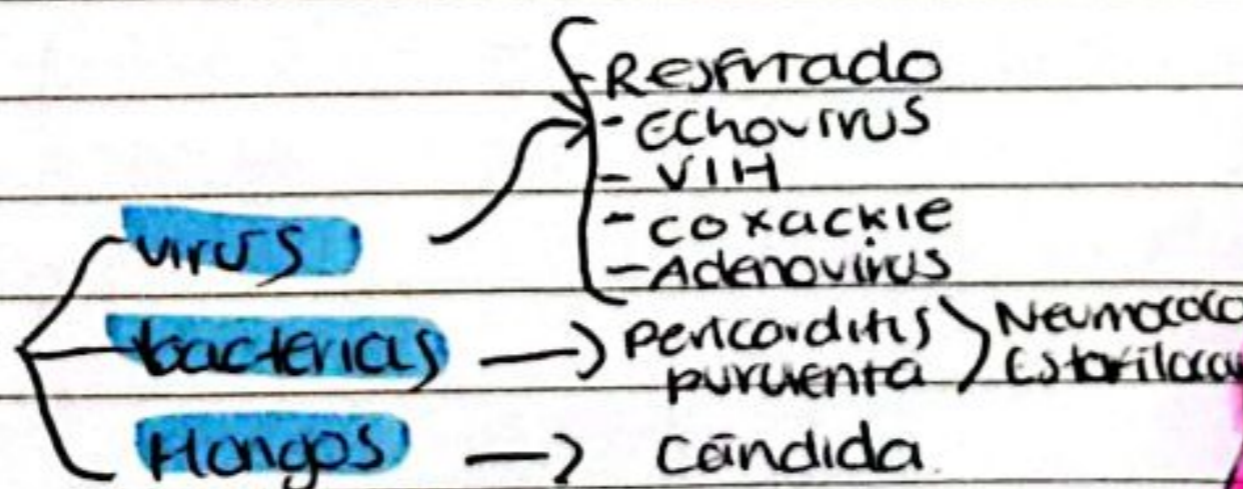 - Resfriado
- Echovirus
- VIH
- coxackie
- Adenovirus
virus
bacterias → pericarditis purulenta Neumococo Estafilococo
Hongos → Cándida